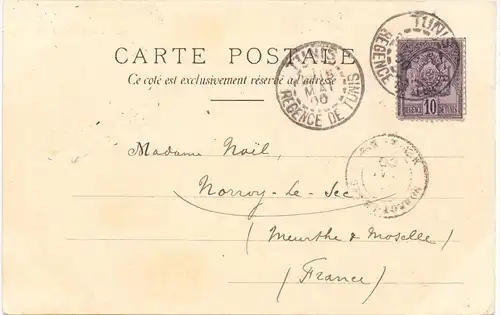 CARTE POSTALE
Ce coté est exclusivement réservé à l'adresse
TUNIS
MAI
00
REGENCE DE TUNIS
TUNIS
REGENCE
10
REGENCE DE TUNIS
Madame Noël,
Norroy-Le-Sec
(Meurthe & Moselle)
(France)